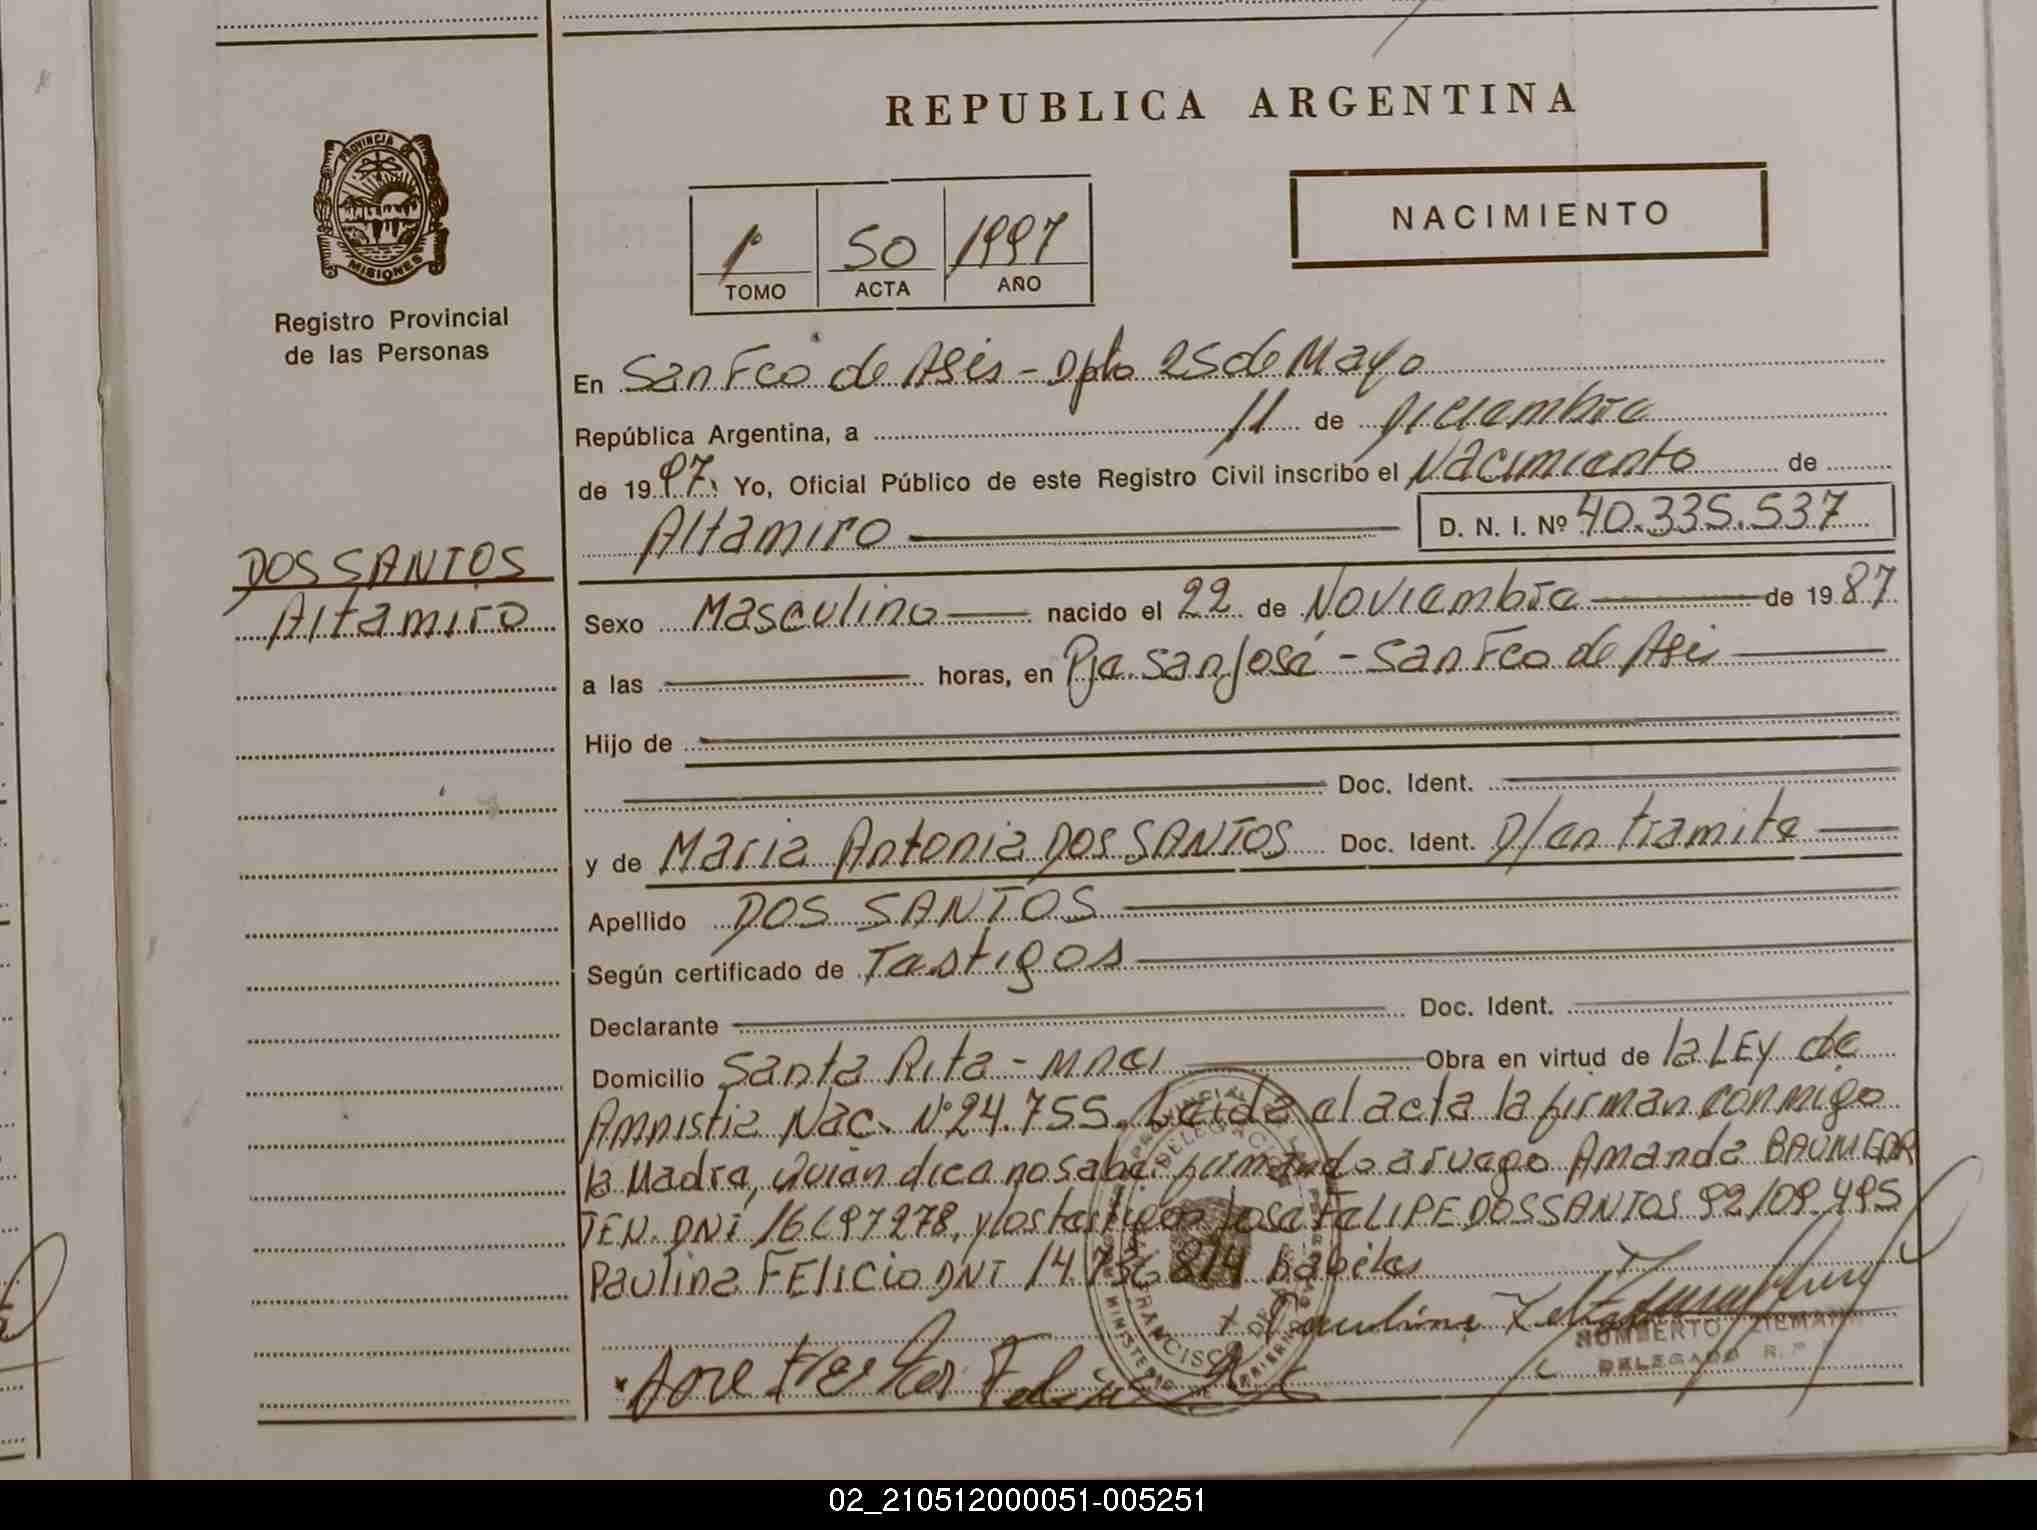 REPUBLICA ARGENTINA
PROVINCIA DE
MISIONES
Registro Provincial
de las Personas
NACIMIENTO
1º 50 1997
TOMO ACTA AÑO
En San Fco de Asis - Dpto 25 de Mayo
República Argentina, a 11 de Diciembre
de 1997. Yo, Oficial Público de este Registro Civil inscribo el Nacimiento de
Altamiro D. N. I. Nº 40.335.537
DOS SANTOS
Altamiro
Sexo Masculino nacido el 22 de Noviembre de 1987
a las horas, en Pje. San José - San Fco de Asis
Hijo de
Doc. Ident.
y de Maria Antonia DOS SANTOS Doc. Ident. D/en tramite
Apellido DOS SANTOS
Según certificado de Testigos
Declarante Doc. Ident.
Domicilio Santa Rita - Mnes Obra en virtud de la LEY de
Amnistia Nac. Nº 24.755. Leida el acta la firman conmigo
la Madre, quien dice no sabe firmando a ruego Amanda BAUMGAR
TEN. DNI 16697278, y los testigos Jose FELIPE DOS SANTOS 92109.495
Paulina FELICIO DNI 14.736.814 habiles
HUMBERTO ZIEMANN
DELEGADO R. P.
02_210512000051-005251